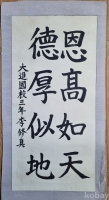 恩高如天
德厚似地
大進國校三年 李修真
kobay